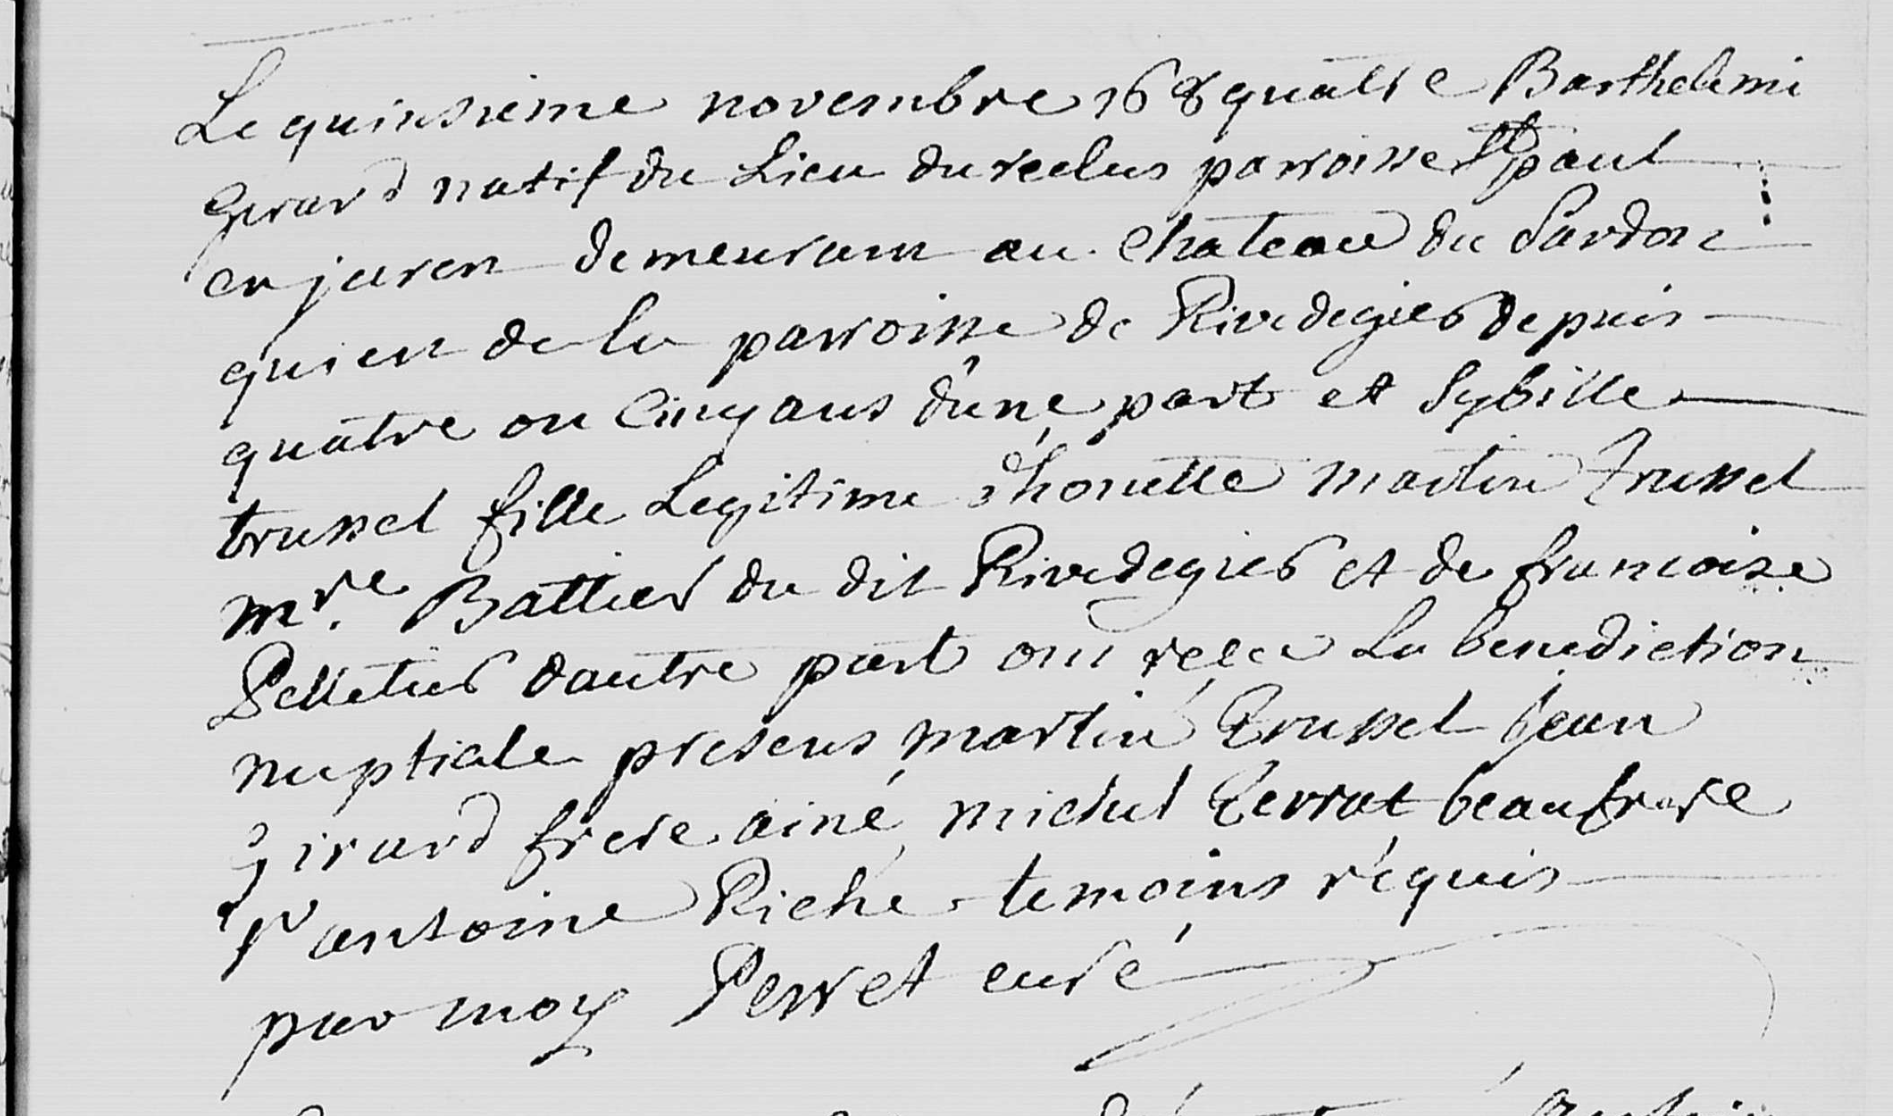 Le quinsieme novembre 168quatre Barthelemi
Girard natif du Lieu du reclus parroisse St paul
en jaren demeurant au chateau du Sardon
qui est de la parroisse de Rivedegies depuis
quatre ou cinq ans d'une part et Sybille
trussel fille Legitime d'honette martin trussel
mre. Battier du dit Rivedegies et de francoise
Pelletier dautre part ont reçu La benediction
nuptiale presens martin trussel jean
girard frere ainé, michel terrat beaufrere
Sr antoine Riche temoins réquis
par moy Perret curé